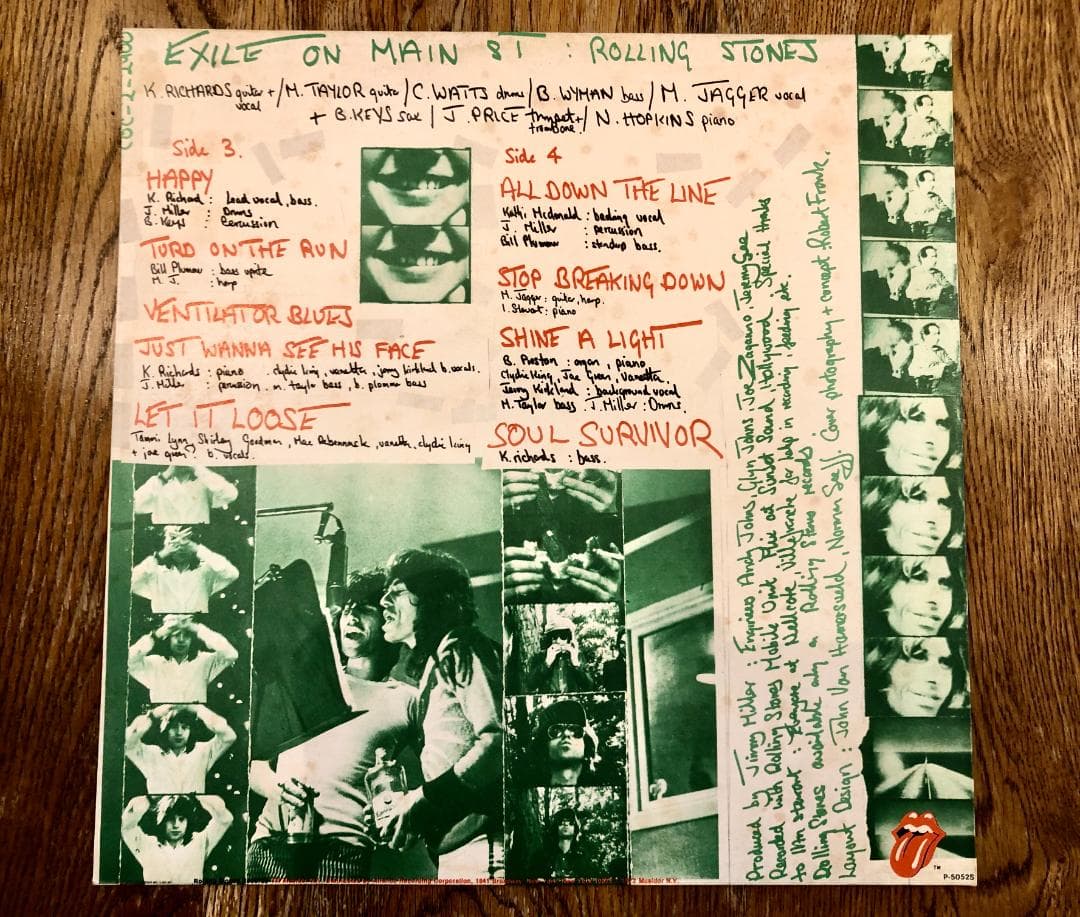 COC-2-2900
EXILE ON MAIN ST : ROLLING STONES
K. RICHARDS guitar + vocal / M. TAYLOR guitar / C. WATTS drums / B. WYMAN bass / M. JAGGER vocal
+ B. KEYS sax / J. PRICE trumpet + trombone / N. HOPKINS piano
Side 3.
HAPPY
K. Richard : Lead vocal, bass.
J. Miller : Drums
B. Keys : Percussion
TURD ON THE RUN
Bill Plummer : bass uprite
M. J. : harp
VENTILATOR BLUES
JUST WANNA SEE HIS FACE
K. Richards : piano . clydie king, vanetta, jerry kirkland b. vocals.
J. Miller : percussion . m. taylor bass, b. plummer bass
LET IT LOOSE
Tammi Lynn, Shirley Goodman, Mac Rebennack, vanetta, clydie king
+ joe green b. vocals.
Side 4
ALL DOWN THE LINE
Kathi Mcdonald : backing vocal
J. Miller : percussion
Bill Plummer : standup bass.
STOP BREAKING DOWN
M. Jagger : guitar, harp.
I. Stewart : piano
SHINE A LIGHT
B. Preston : organ, piano
Clydie King, Joe Green, Vanetta,
Jerry Kirkland : background vocal
M. Taylor bass . J. Miller : Drums.
SOUL SURVIVOR
K. richards : bass.
Produced by Jimmy Miller : Engineers Andy Johns, Glyn Johns, Joe Zagarino, Jeremy Gee
Recorded with Rolling Stones Mobile Unit. Mix at Sunset Sound Hollywood. Special thanks
to Ian stewart . Everyone at Nellcote, Villefranche for help in recording, feeding etc.
Rolling Stones available only on Rolling Stones records.
Layout Design : John Van Hamersveld, Norman Seeff. Cover photography + concept : Robert Frank.
Recording Corporation, 1841 Broadway, New York, New York
Musidor N.V.
TM
P-50525